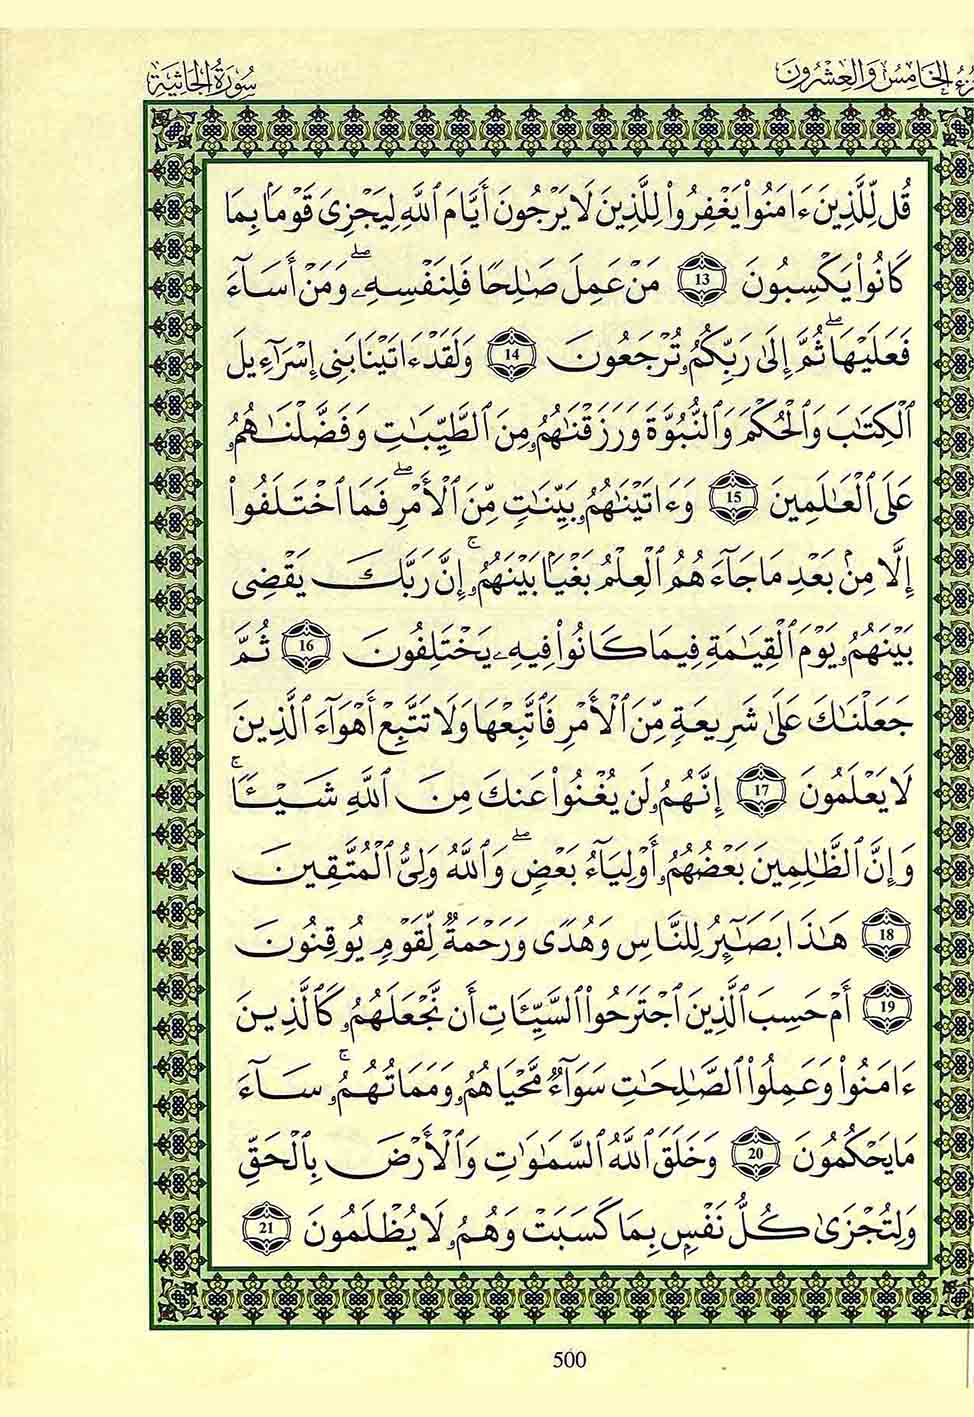 الجزء الخامس والعشرون
سورة الجاثية
قُل لِّلَّذِينَ ءَامَنُواْ يَغْفِرُواْ لِلَّذِينَ لَا يَرْجُونَ أَيَّامَ ٱللَّهِ لِيَجْزِىَ قَوْمَۢا بِمَا
كَانُواْ يَكْسِبُونَ 13 مَنْ عَمِلَ صَٰلِحًا فَلِنَفْسِهِۦۖ وَمَنْ أَسَآءَ
فَعَلَيْهَاۖ ثُمَّ إِلَىٰ رَبِّكُمُۥ تُرْجَعُونَ 14 وَلَقَدْ ءَاتَيْنَا بَنِىٓ إِسْرَآءِيلَ
ٱلْكِتَٰبَ وَٱلْحُكْمَ وَٱلنُّبُوَّةَ وَرَزَقْنَٰهُمُۥ مِنَ ٱلطَّيِّبَٰتِ وَفَضَّلْنَٰهُمُۥ
عَلَى ٱلْعَٰلَمِينَ 15 وَءَاتَيْنَٰهُمُۥ بَيِّنَٰتٍ مِّنَ ٱلْأَمْرِۖ فَمَا ٱخْتَلَفُواْ
إِلَّا مِنۢ بَعْدِ مَا جَآءَهُمُ ٱلْعِلْمُ بَغْيَۢا بَيْنَهُمُۥۚ إِنَّ رَبَّكَ يَقْضِى
بَيْنَهُمُۥ يَوْمَ ٱلْقِيَٰمَةِ فِيمَا كَانُواْ فِيهِۦ يَخْتَلِفُونَ 16 ثُمَّ
جَعَلْنَٰكَ عَلَىٰ شَرِيعَةٍ مِّنَ ٱلْأَمْرِ فَٱتَّبِعْهَا وَلَا تَتَّبِعْ أَهْوَآءَ ٱلَّذِينَ
لَا يَعْلَمُونَ 17 إِنَّهُمُۥ لَن يُغْنُواْ عَنكَ مِنَ ٱللَّهِ شَيْـًٔاۚ
وَإِنَّ ٱلظَّٰلِمِينَ بَعْضُهُمُۥ أَوْلِيَآءُ بَعْضٍۖ وَٱللَّهُ وَلِىُّ ٱلْمُتَّقِينَ
18 هَٰذَا بَصَٰٓئِرُ لِلنَّاسِ وَهُدًى وَرَحْمَةٌ لِّقَوْمٍ يُوقِنُونَ
19 أَمْ حَسِبَ ٱلَّذِينَ ٱجْتَرَحُواْ ٱلسَّيِّـَٔاتِ أَن نَّجْعَلَهُمُۥ كَٱلَّذِينَ
ءَامَنُواْ وَعَمِلُواْ ٱلصَّٰلِحَٰتِ سَوَآءٌ مَّحْيَاهُمُۥ وَمَمَاتُهُمُۥۚ سَآءَ
مَا يَحْكُمُونَ 20 وَخَلَقَ ٱللَّهُ ٱلسَّمَٰوَٰتِ وَٱلْأَرْضَ بِٱلْحَقِّ
وَلِتُجْزَىٰ كُلُّ نَفْسٍۭ بِمَا كَسَبَتْ وَهُمُۥ لَا يُظْلَمُونَ 21
500